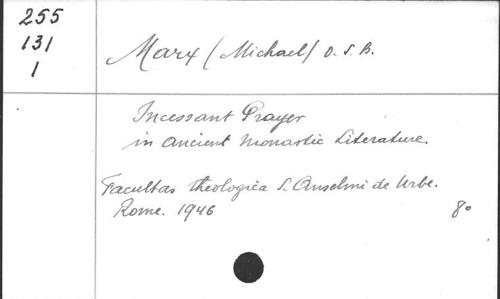 255
131
1
Marx (Michael) O.S.B.
Incessant Prayer
in Ancient Monastic Literature.
Facultas theologica S. Anselmi de Urbe.
Rome. 1946
8º